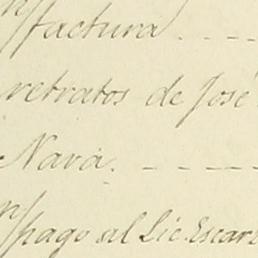 factura. - - -
retratos de José
Nava. - - - -
pago al Lic. Escar